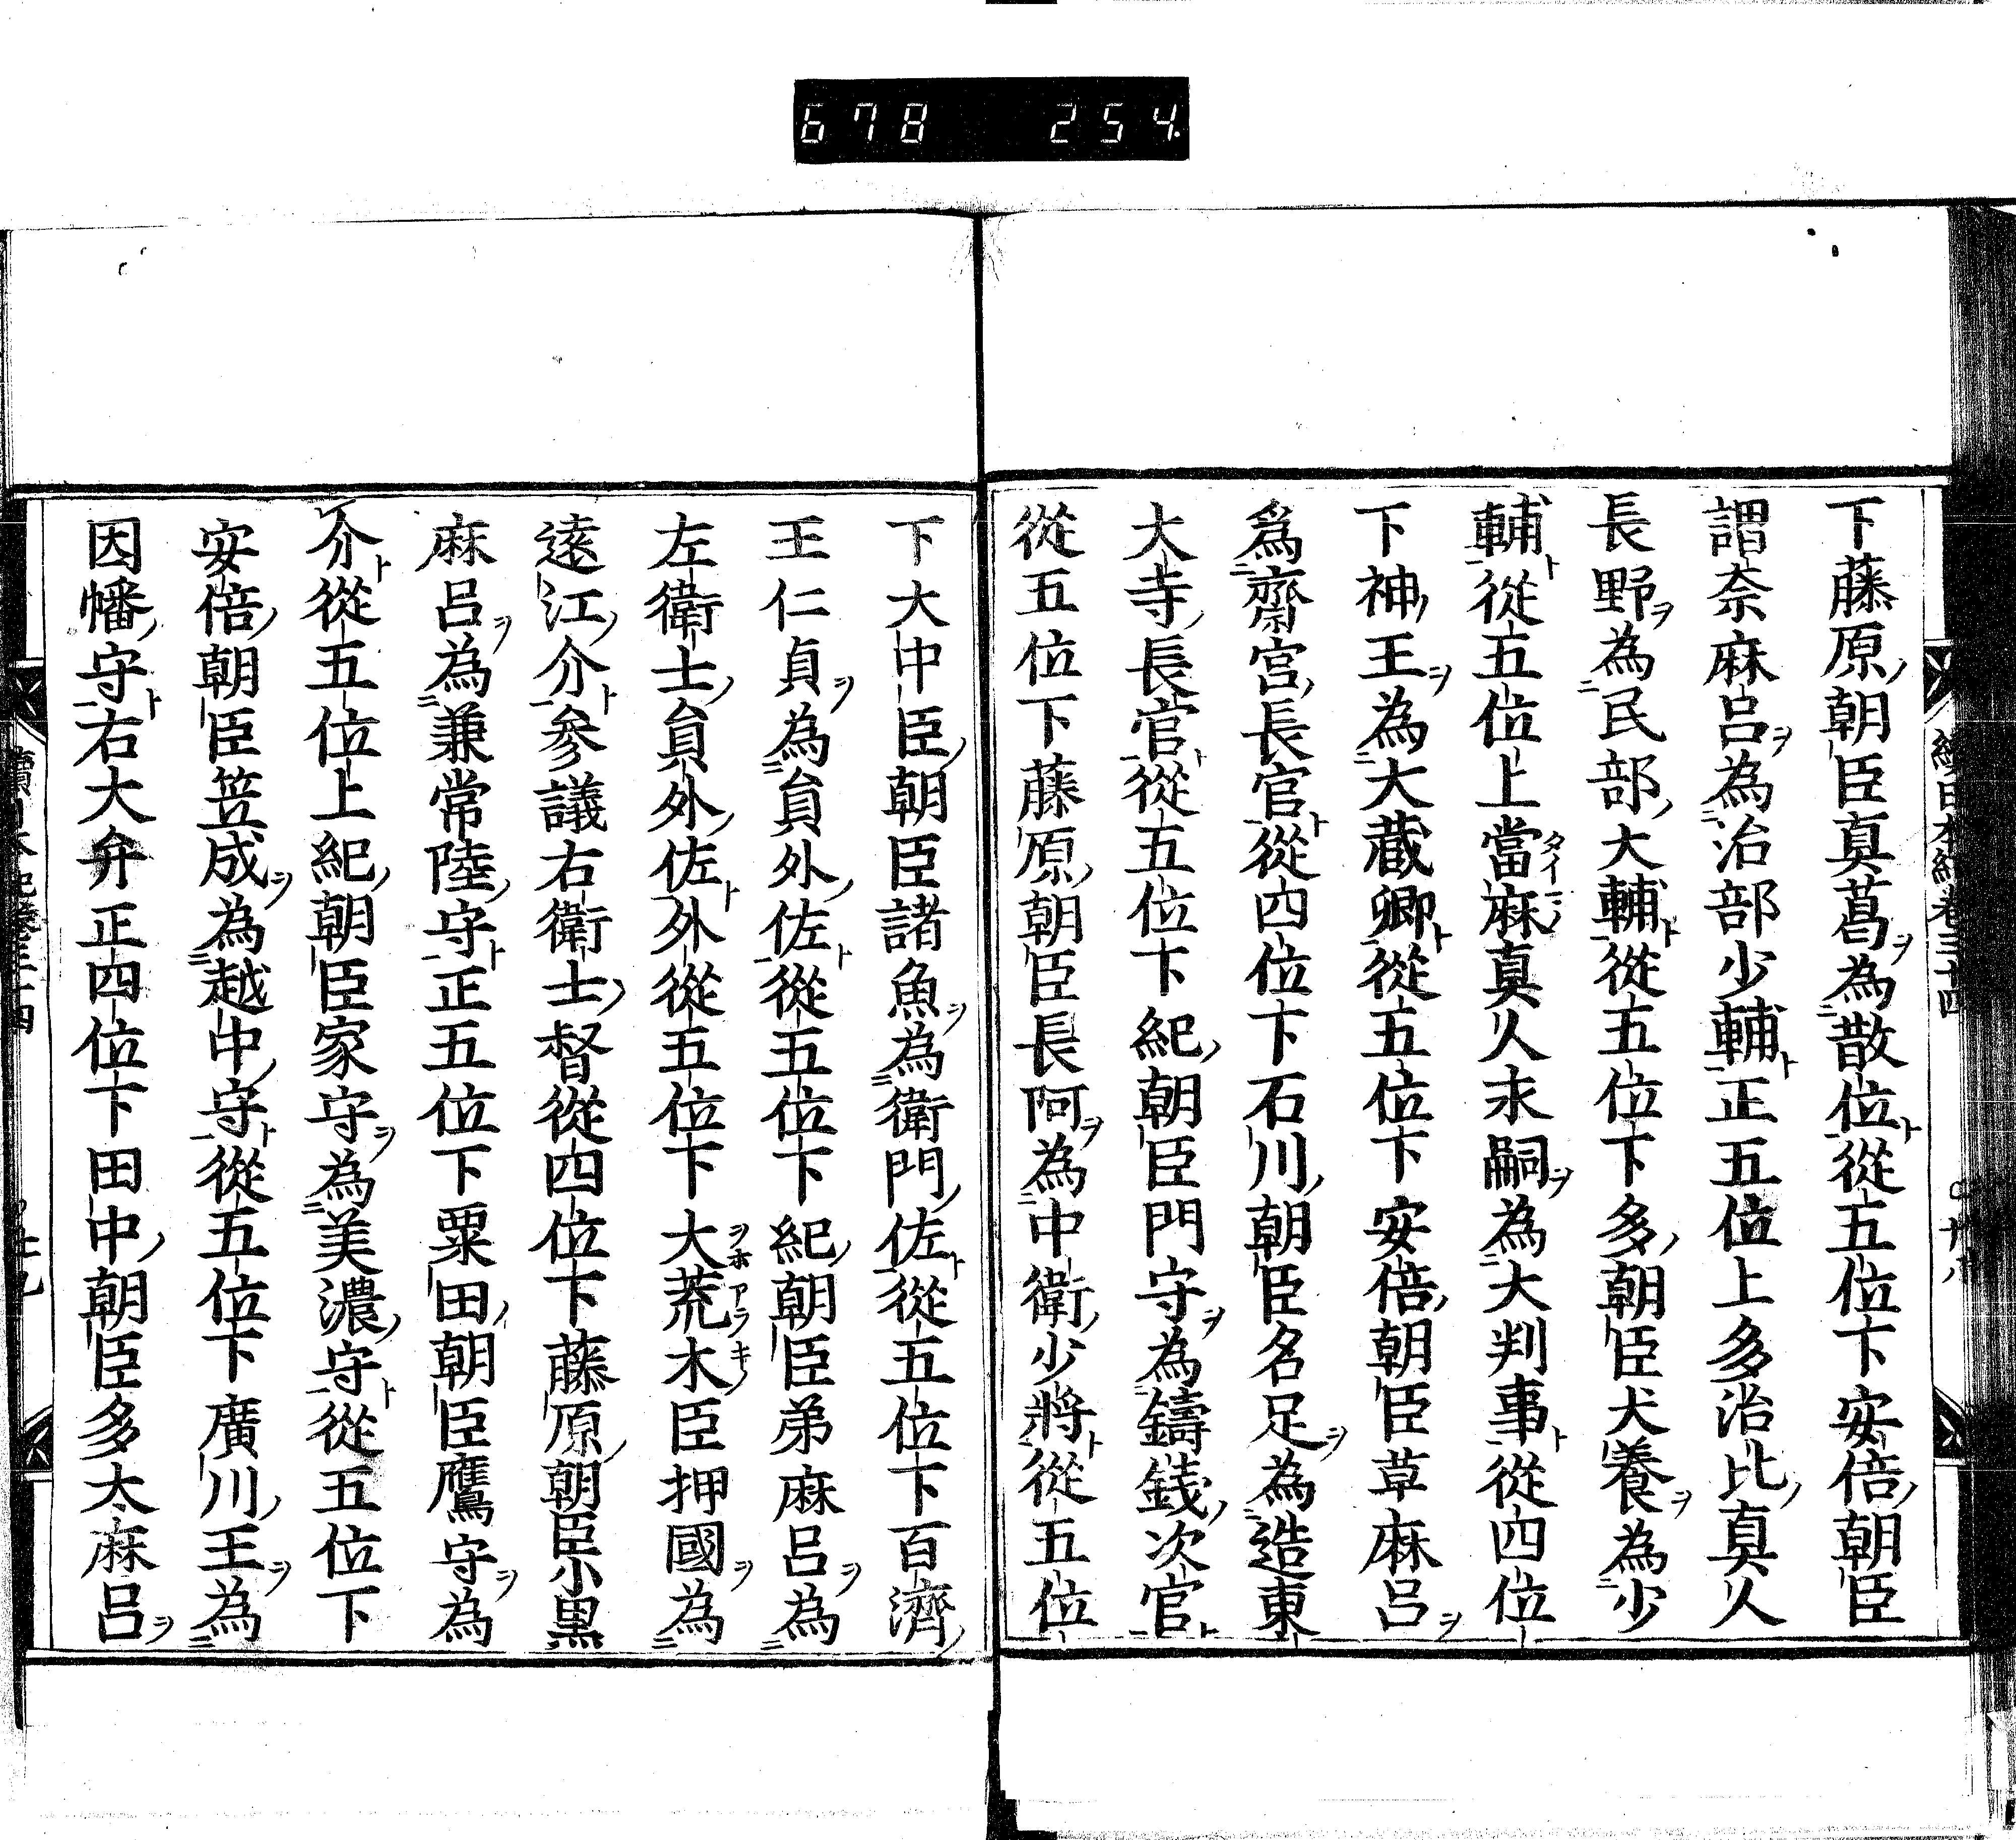 678 254
下藤原朝臣真葛ヲ為散位ト從五位下安倍朝臣
謂奈麻呂ヲ為治部少輔ト正五位上多治比真人
長野ヲ為民部大輔ト從五位下多朝臣犬養ヲ為少
輔ト從五位上當麻真人永嗣ヲ為大判事ト從四位
下神王ヲ為大蔵卿ト從五位下安倍朝臣草麻呂ヲ
爲齋宮長官ト從四位下石川朝臣名足ヲ為造東
大寺長官ト從五位下紀朝臣門守ヲ為鑄錢次官ト
從五位下藤原朝臣長阿ヲ為中衛少將ト從五位
下大中臣朝臣諸魚ヲ為衛門佐ト從五位下百濟
王仁貞ヲ為員外佐ト從五位下紀朝臣弟麻呂ヲ為
左衛士員外佐ト外從五位下大荒木臣押國ヲ為
遠江介ト参議右衛士督從四位下藤原朝臣小黒
麻呂ヲ為兼常陸守ト正五位下粟田朝臣鷹守ヲ為
介ト從五位上紀朝臣家守ヲ為美濃守ト從五位下
安倍朝臣笠成ヲ為越中守ト從五位下廣川王ヲ為
因幡守ト右大弁正四位下田中朝臣多太麻呂ヲ